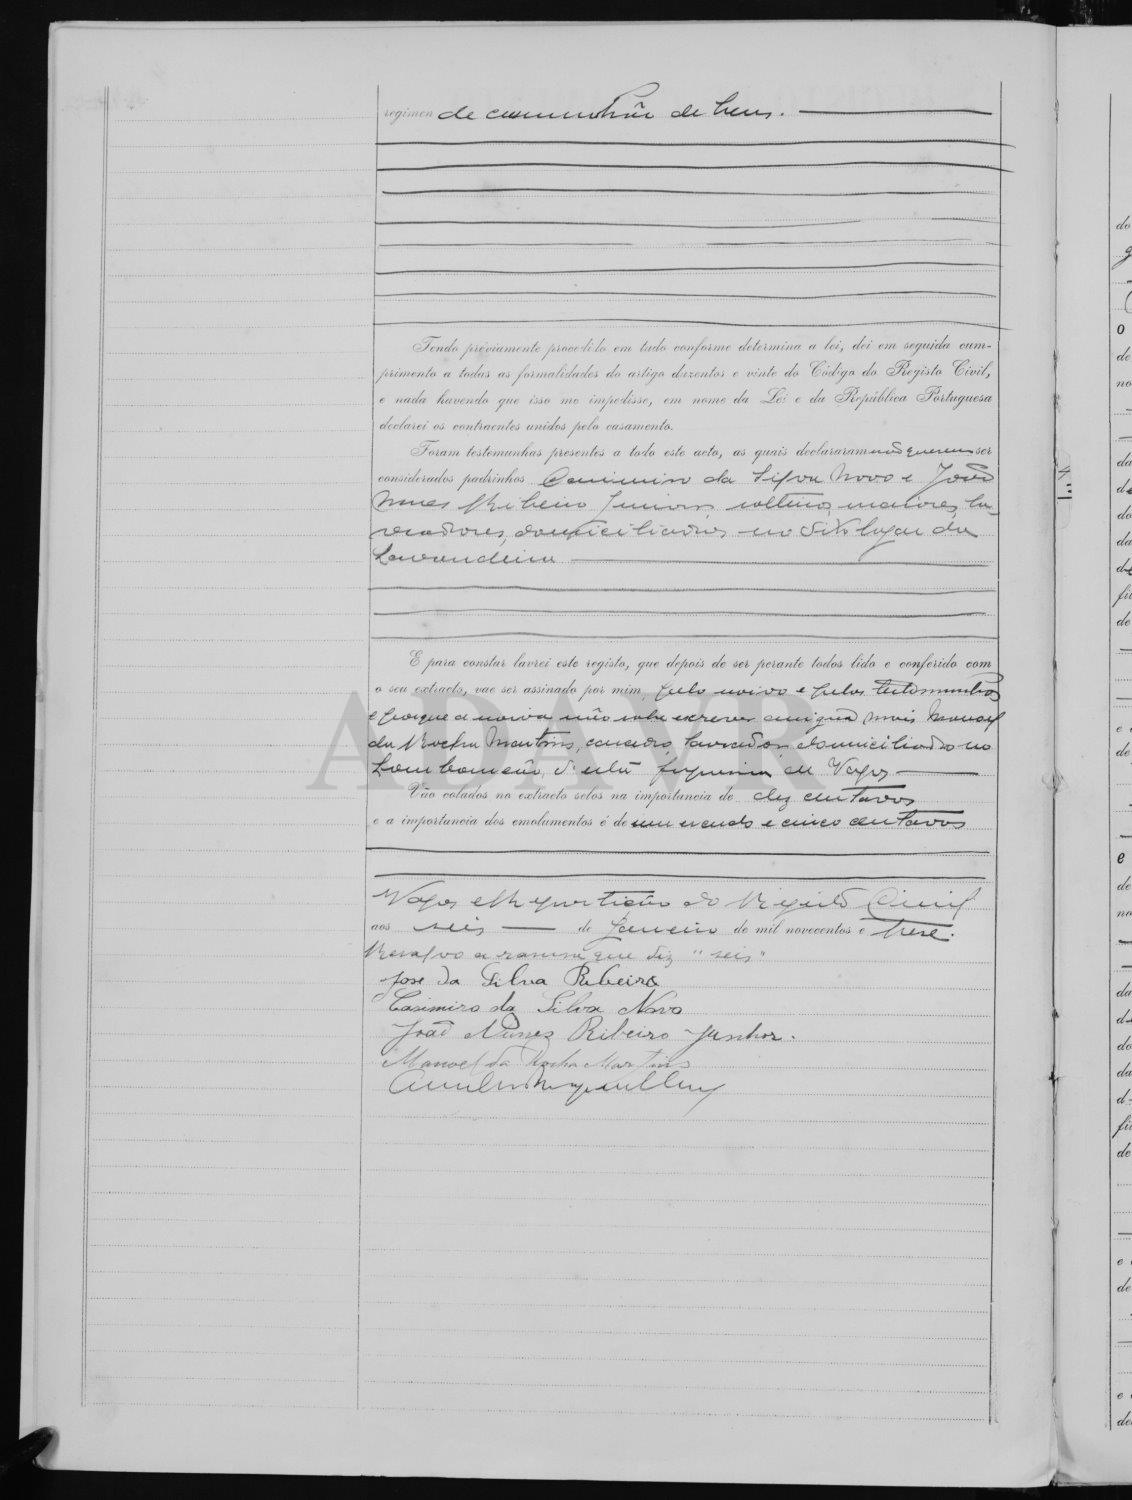 regimen de communhão de bens.
Tendo préviamente procedido em tudo conforme determina a lei, dei em seguida cum-
primento a todas as formalidades do artigo duzentos e vinte do Código do Registo Civil,
e nada havendo que isso me impedisse, em nome da Lei e da República Portuguesa
declarei os contraentes unidos pelo casamento.
Foram testemunhas presentes a todo este acto, as quais declararam não querem ser
considerados padrinhos Casimiro da Silva Novo e João
Nunes Ribeiro Junior, solteiros, maiores, la-
vradores, domiciliados no dito lugar da
Lavandeira
E para constar lavrei este registo, que depois de ser perante todos lido e conferido com
o seu extracto, vae ser assinado por mim, pelo noivo e pelas testemunhas
e porque a noiva não sabe escrever assigna mais Manoel
da Rocha Martins, casado, lavrador domiciliado no
Lombomeão, d'esta freguesia de Vagos
Vão colados no extracto selos na importancia de dez centavos
e a importancia dos emolumentos é de um escudo e cinco centavos
Vagos e Repartição do Registo Civil
aos seis de Janeiro de mil novecentos e treze.
Resalvo a rasura que diz "seis"
Jose da Silva Ribeiro
Casimiro da Silva Novo
João Nunes Ribeiro Junhor.
Manoel da Rocha Martins
ADAVR